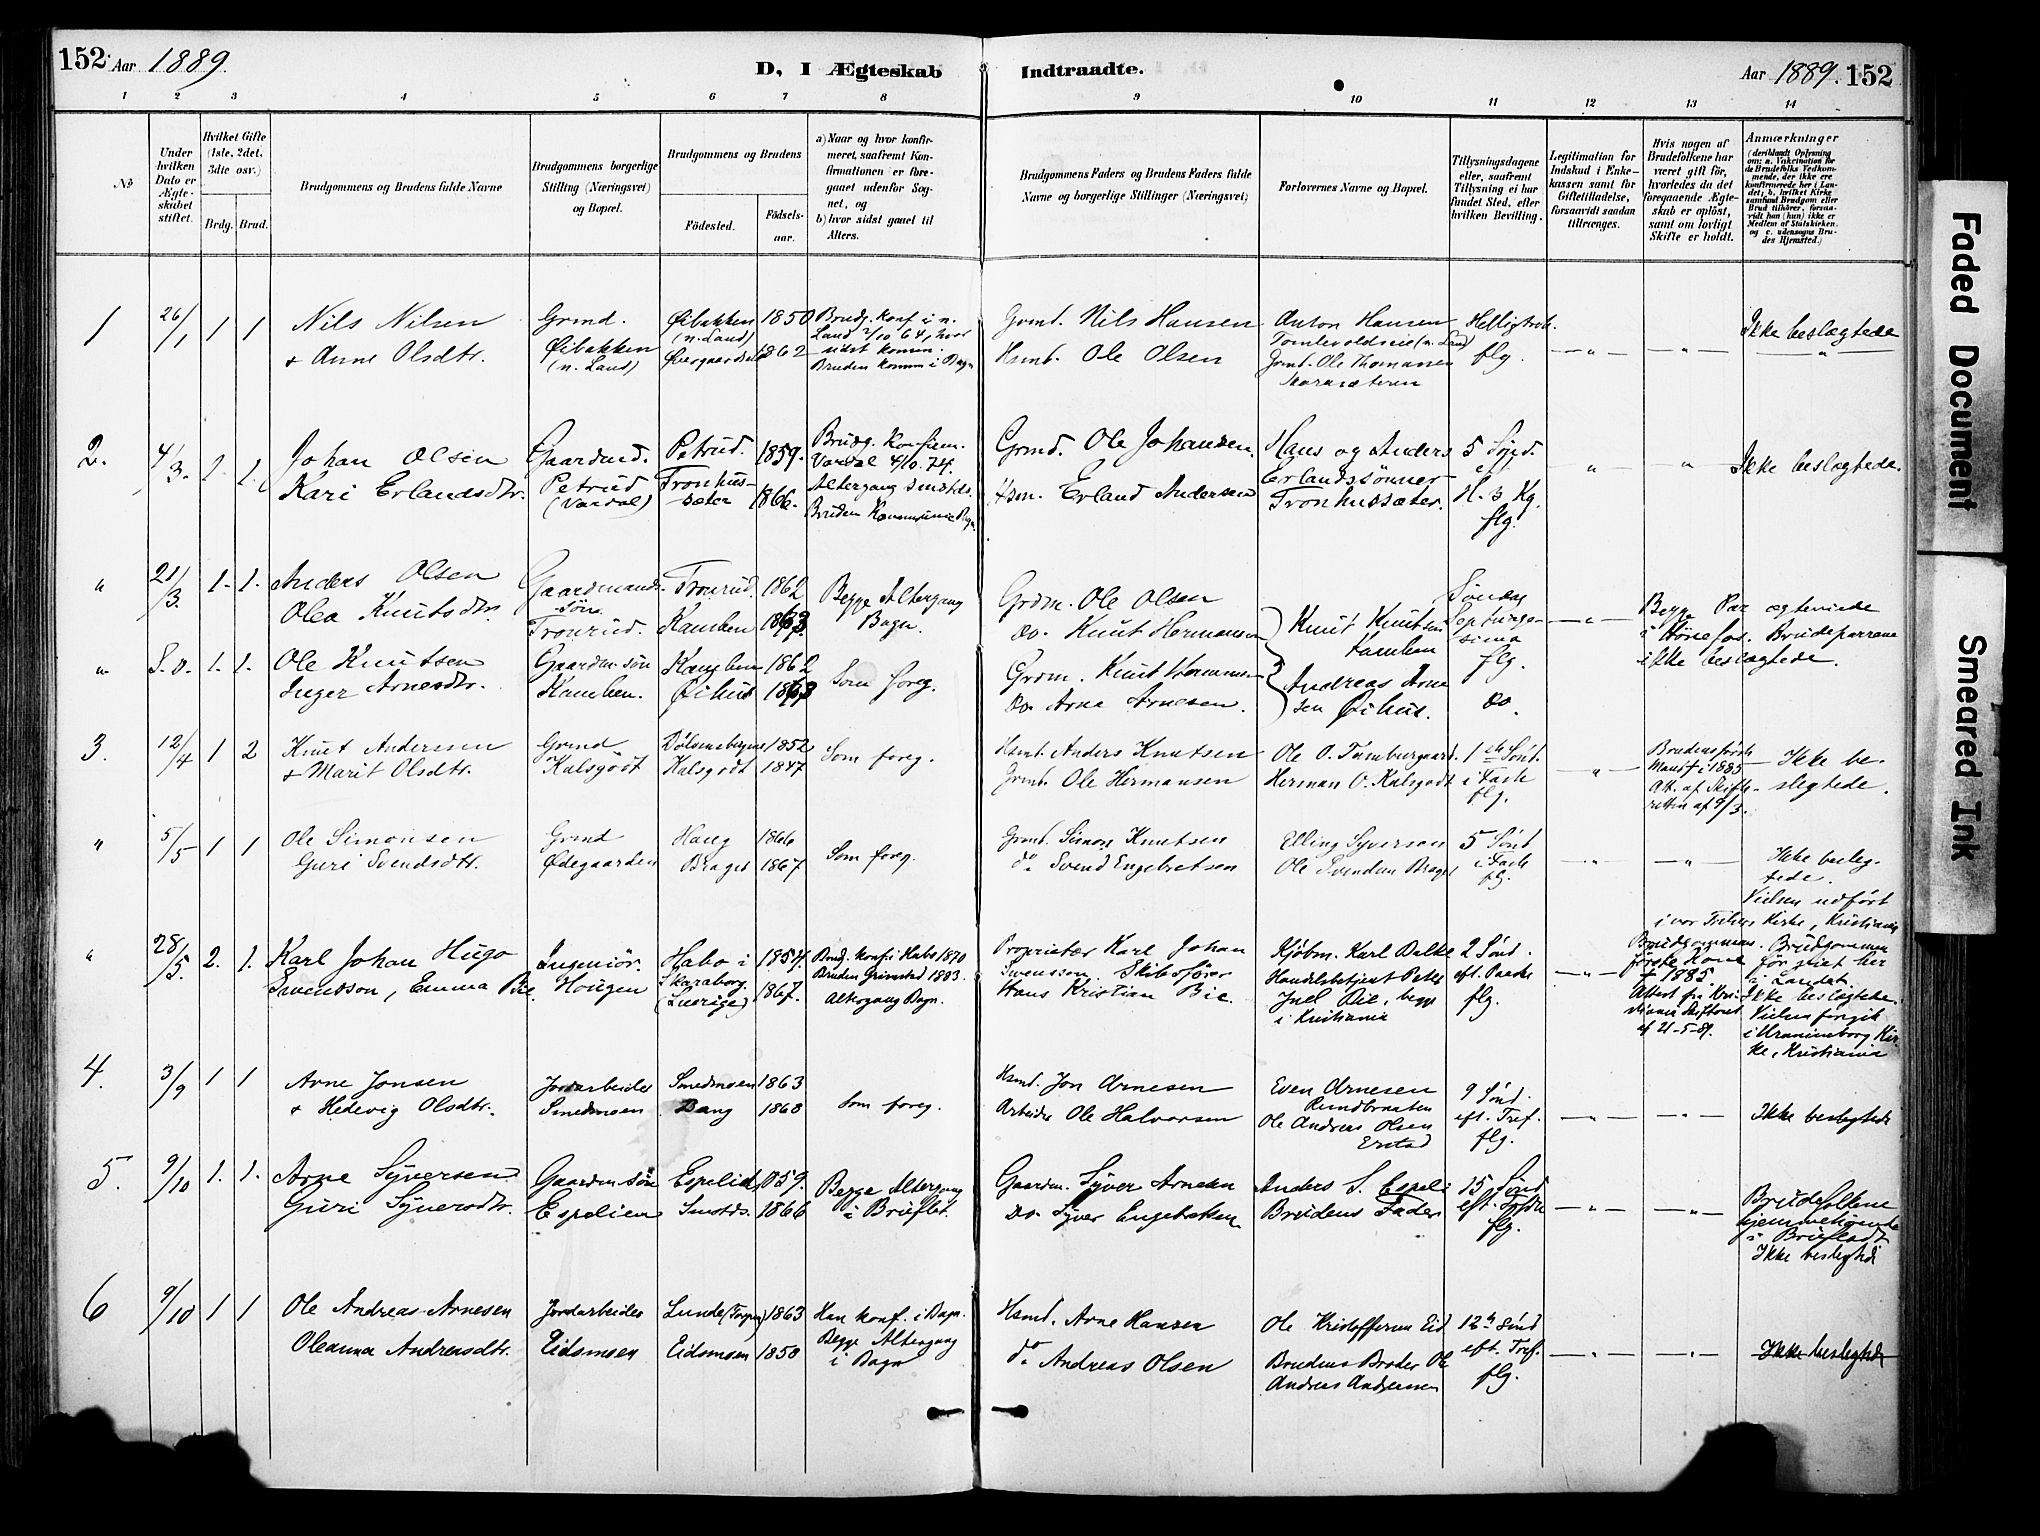 152 Aar 1889. D, I Ægteskab Indtraadte. Aar 1889. 152
1 2 3 4 5 6 7 8 9 10 11 12 13 14
No
Under hvilken Dato er Ægteskabet stiftet.
Hvilket Gifte (1ste, 2det, 3die osv.)
Brdg. Brud.
Brudgommens og Brudens fulde Navne
Brudgommens borgerlige Stilling (Næringsvei) og Bopæl.
Brudgommens og Brudens
Födested.
Födselsaar.
a) Naar og hvor konfirmeret, saafremt Konfirmationen er foregaaet udenfor Sognet, og
b) hvor sidst gaaet til Alters.
Brudgommens Faders og Brudens Faders fulde Navne og borgerlige Stillinger (Næringsvei)
Forlovernes Navne og Bopæl.
Tillysningsdagene eller, saafremt Tillysning ei har fundet Sted, efter hvilken Bevilling.
Legitimation for Indskud i Enkekassen samt for Giftetilladelse, forsaavidt saadan tiltrænges.
Hvis nogen af Brudefolkene har været gift för, hvorledes da det foregaaende Ægteskab er oplöst, samt om lovligt Skifte er holdt.
Anmærkninger
(deriblandt Oplysning om: a. Vakcination for de Brudefolks Vedkommende, der ikke ere konfirmerede her i Landet; b. hvilket Kirkesamfund Brudgom eller Brud tilhörer, forsaavidt han (hun) ikke er Medlem af Statskirken, og c. udensogns Brudes Hjemsted.)
1 26/1 1 1 Nils Nilsen Grmd. Øibakken 1850 Brudg. konf i n. Grmd. Nils Hansen Anton Hansen
& Anne Olsdtr. Øibakken (n. Land) 1862 Land 2/10 64, hvor sidst komm. Hsmd. Ole Olsen flg. Ikke beslegtede
(n. Land) Bruden komm i Bagn Grmd. Ole Thomassen
2. 4/3. 1. 1. Johan Olsen Gaardmd. Petrud. 1859. Brudg. Konfirm. Grmd. Ole Johansen. Hans og Anders 5 Sønd. Ikke beslegtede.
Kari Erlandsdtr. Petrud Tronhus- 1866. Vardal 4/10. 74. Hsm. Erland Andersen Erlandssønner
(Vardal) sæter Altergang Tronhussæter. flg.
" 21/3. 1. 1. Anders Olsen Gaardmands Tronrud. 1862 Begge Altergang Grdm. Ole Olsen Søndag
Olea Knutsdtr. søn Tronrud. 1863 Bagn. do. Knut Hermansen Knut Knutsen Septuagesima flg. Begge Par ægteviede
" S. D. 1. 1. Ole Knutsen Gaardm. søn 1862 Som foreg. Grdm. Knut i Hønefos. Brudeparrene
Inger Arnesdtr. Øihus 1863 Do. Arne Arnesen. Andreas Arnesen Øihus. do. ikke beslegtede.
3. 12/4 1 2 Knut Andersen Grmd 1852 Som foreg. Hsmd. Anders Knutsen 1ste Sønd. Brudens første Ikke be-
& Marit Olsdtr. Kalsgodt Kalsgodt 1847 Grmd. Ole Hermansen Herman O. Kalsgodt i Faste flg. Mand † i 1885 slegtede.
" 5/5 1 1 Ole Simonsen Grmd Haug 1866 Som foreg. Grmd. Simon Knutsen Elling Syversen 5 Sønd
Guri Svendsdtr. Ødegaarden 1867 do. Svend Engebretsen Ole Svendsen i Faste flg. Ikke besleg-
tede.
Vielsen udført
i vor Frelsers Kirke, Kristiania
" 28/5. 2. 1. Karl Johan Hugo Ingeniør. Habo i 1857. Brudg. konf i Habo 1870 Proprietær Karl Johan Kjøbm. Karl 2 Sønd. Brudgommens Brudgommen
Svendsson, Emma Bie. Hougen Skaraborg. 1867. Bruden Grimstad 1883. Svensson. Skibsfører Handelsbetjent Peter eft. Paaske første Kone før viet her
(Sverige) Altergang Bagn. Hans Kristian Bie. Juel Bie, begge flg. † 1885 i Landet.
i Kristiania Attest fra Kri- Ikke beslegtede.
stiania Skifteret Vielsen foregik
af 21-5-89. i Uranienborg Kir-
ke, Kristiania
4. 3/9 1 1 Arne Jonsen Jordarbeider Smedmoen 1863 Som foreg. Hsmd. Jon Arnesen Even Arnesen 9 Sønd. Ikke beslegtede
& Hedevig Olsdtr. Smedmoen Bang 1868 Arbeider Ole Halvorsen Ole Andreas Olsen eft. Tref. flg.
5. 9/10 1. 1. Arne Syversen Gaardm. søn Espelid 1859. Begge Altergang Gaardm. Syver Arnesen Anders S. Espeli 15 Sønd Brudefolkene
Guri Syversdtr. Espelien 1866 i Bruflat. Do. Syver Engebretsen Brudens Fader eft. flg. hjemmehørende
i Bruflat
Ikke beslegtede
6 9/10 1 1 Ole Andreas Arnesen Jordarbeider Lunde 1863 Han konf. i Bagn. Hsmd. Arne Hansen Ole Kristoffersen Eid 12te Sønd Ikke beslegtede
Oleanna Andreasdtr. Eidsmoen Eidsmoen 1858 Begge Altergang do. Andreas Olsen Brudens Broder Ole eft. Tref. flg.
i Bagn Andreas Andersen
Faded Document
Smeared Ink